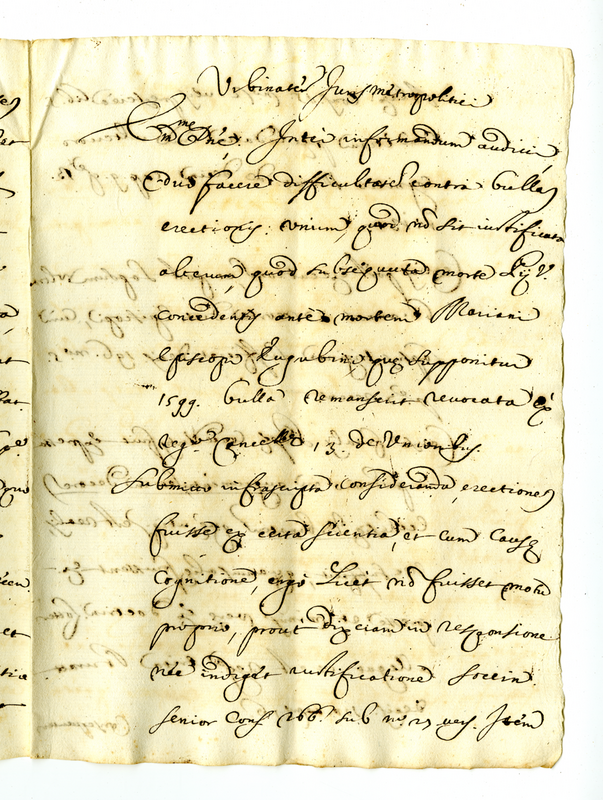 Urbinaten Juris metropolitici
Emme Dne, Inter informandum audivi
duo facere difficultatē contra bullā
erectionis: unum, quod nō sit iustificata
alterum, quod subsequuta morte Pij V.
concedentis ante mortem Mariani
Episcopi Eugubini quę supponitur
1599. bulla remanserit revocata ex
reg. Cancell. 13. de Unionib.
Submitto infrascripta consideranda, erectionē
fuisse ex certa scientia, et cum causę
cognitione, ergo licet nō fuisset motu
proprio, prout dicam in responsione
nec indiget iustificatione Soccin.
senior cons. 266. sub nº 27 vers. Item